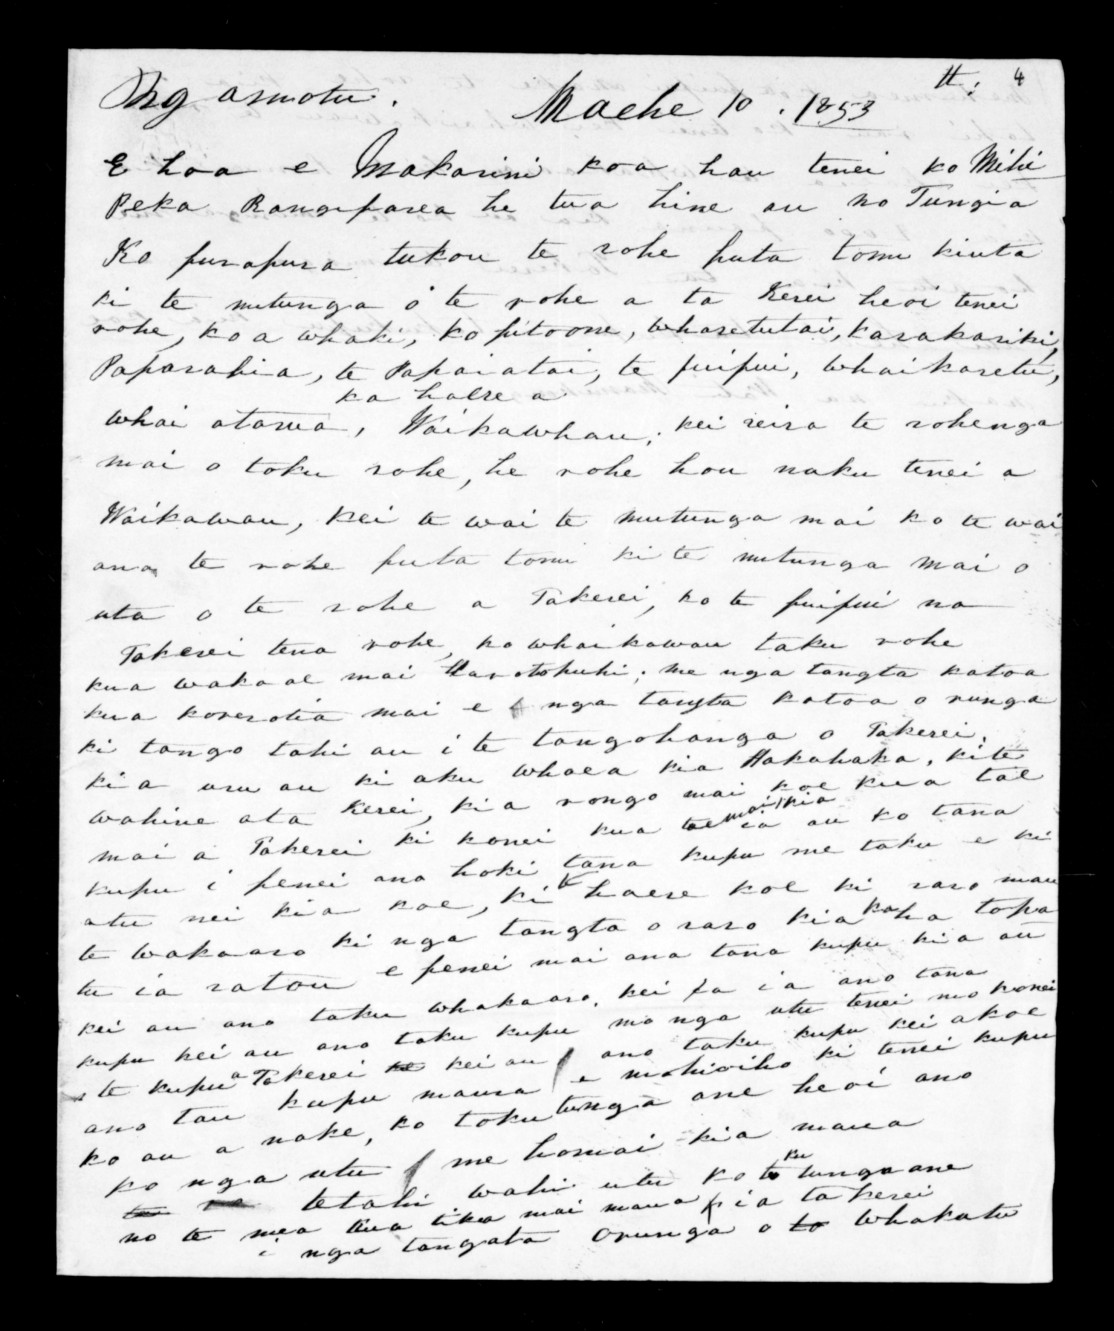 Ng amotu. Maehe 10. 1853 4
E hoa e Makarini koa hau tenei ko Mihi
Peka Rangiparea he tua hine au no Tungia
Ko purapura tukou te rohe puta tomu kiuta
ki te mutunga o te rohe a ta Kerei heoi tenei
rohe, ko a whaki, ko pitoone, wharetutai, karakariki,
Paparahia, te Papaiatai, te puipui, whaikaretu,
ka haere a
whai atawa, Waikawhau, kei reira te rohenga
mai o toku rohe, he rohe hou naku tenei a
Waikawau, kei te wai te mutunga mai ko te wai
ano te rohe puta tomu ki te mutunga mai o
uta o te rohe a Takerei, ko te puipui na
Takerei tena rohe, ko whaikawau taku rohe
kua wakaae mai me nga tangta katoa
kua korerotia mai e nga tangta katoa o runga
ki tango tahi au i te tangohanga o Takerei.
kia uru au ki aku whaea kia Hakahaka, kite
wahine ata Kerei, kia rongo mai koe kua tae
mai a Takerei ki konei kua tae mai ia kia au ko tana
kupu i penei ana hoki tana kupu me taku e ki
atu nei kia koe, ki haere koe ki raro mau
te wakaaro ki nga tangta o raro kia kaha topa
tu ia ratou e penei mai ana tana kupu kia au
kei au ano taku whakaaro, kei ia ano tana
kupu kei au ano taku kupu mo nga utu tenei mo konei
te kupu a Takerei kei au ano taku kupu kei akoe
ano tau kupu maua e mohioiho ki tenei kupu
ko au a nake, ko toku tunga ane heoi ano
ko nga utu me homai kia maua
tetahi wahi utu ko toku tungaane
no te mea tika mai maua kia takerei
i nga tangata orunga o whakatu